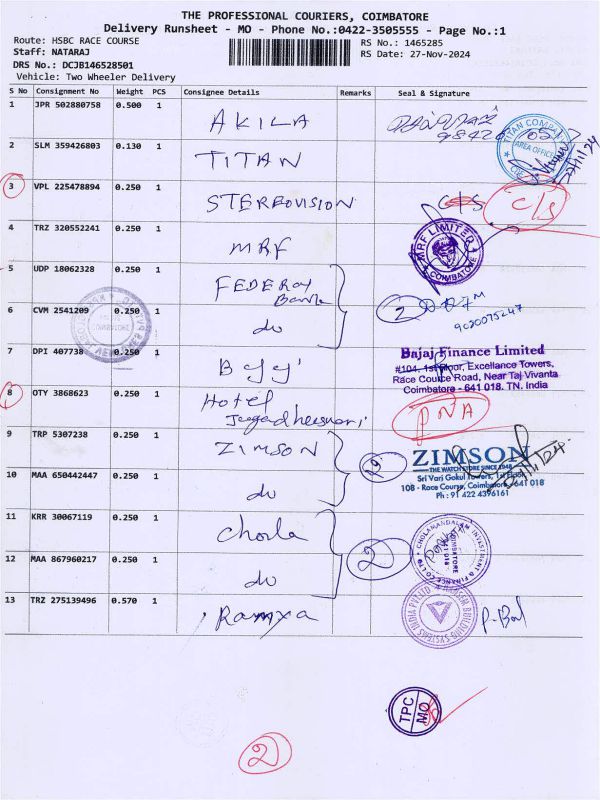 THE PROFESSIONAL COURIERS, COIMBATORE
Delivery Runsheet - MO - Phone No.:0422-3505555 - Page No.:1
Route: HSBC RACE COURSE
RS No.: 1465285
Staff: NATARAJ
RS Date: 27-Nov-2024
DRS No.: DCJB146528501
Vehicle: Two Wheeler Delivery
S No Consignment No Weight PCS Consignee Details Remarks Seal & Signature
1 JPR 502880758 0.500 1 AKILA
2 SLM 359426803 0.130 1 TITAN
TITAN COMPANY
AREA OFFICE
3 VPL 225478894 0.250 1 STEREOVISION C/S C/S
4 TRZ 320552241 0.250 1 MRF
MRF LIMITED
COIMBATORE
5 UDP 18062328 0.250 1 FEDERAL Bank
6 CVM 2541209 0.250 1 do 2
9020075247
7 DPI 407738 0.250 1
Bajaj Finance Limited
#104, 1st Floor, Excellance Towers,
Race Cource Road, Near Taj Vivanta
Coimbatore - 641 018. TN. India
8 OTY 3868623 0.250 1 Hotel Jeegadheeswari PNA
9 TRP 5307238 0.250 1 ZIMSON
ZIMSON
THE WATCH STORE SINCE 1948
Sri Vari Gokul Towers, 1st Floor
108 - Race Course, Coimbatore - 641 018
Ph : 91 422 4396161
10 MAA 650442447 0.250 1 do
11 KRR 30067119 0.250 1 Chola
CHOLAMANDALAM INVESTMENT & FINANCE CO LTD
COIMBATORE
12 MAA 867960217 0.250 1 do 2
13 TRZ 275139496 0.570 1 Ramya
BUILDING SYSTEMS INDIA PVT LTD
TPC
MO
2